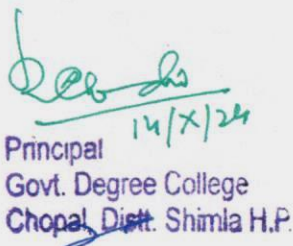 14/X/24
Principal
Govt. Degree College
Chopal, Distt. Shimla H.P.